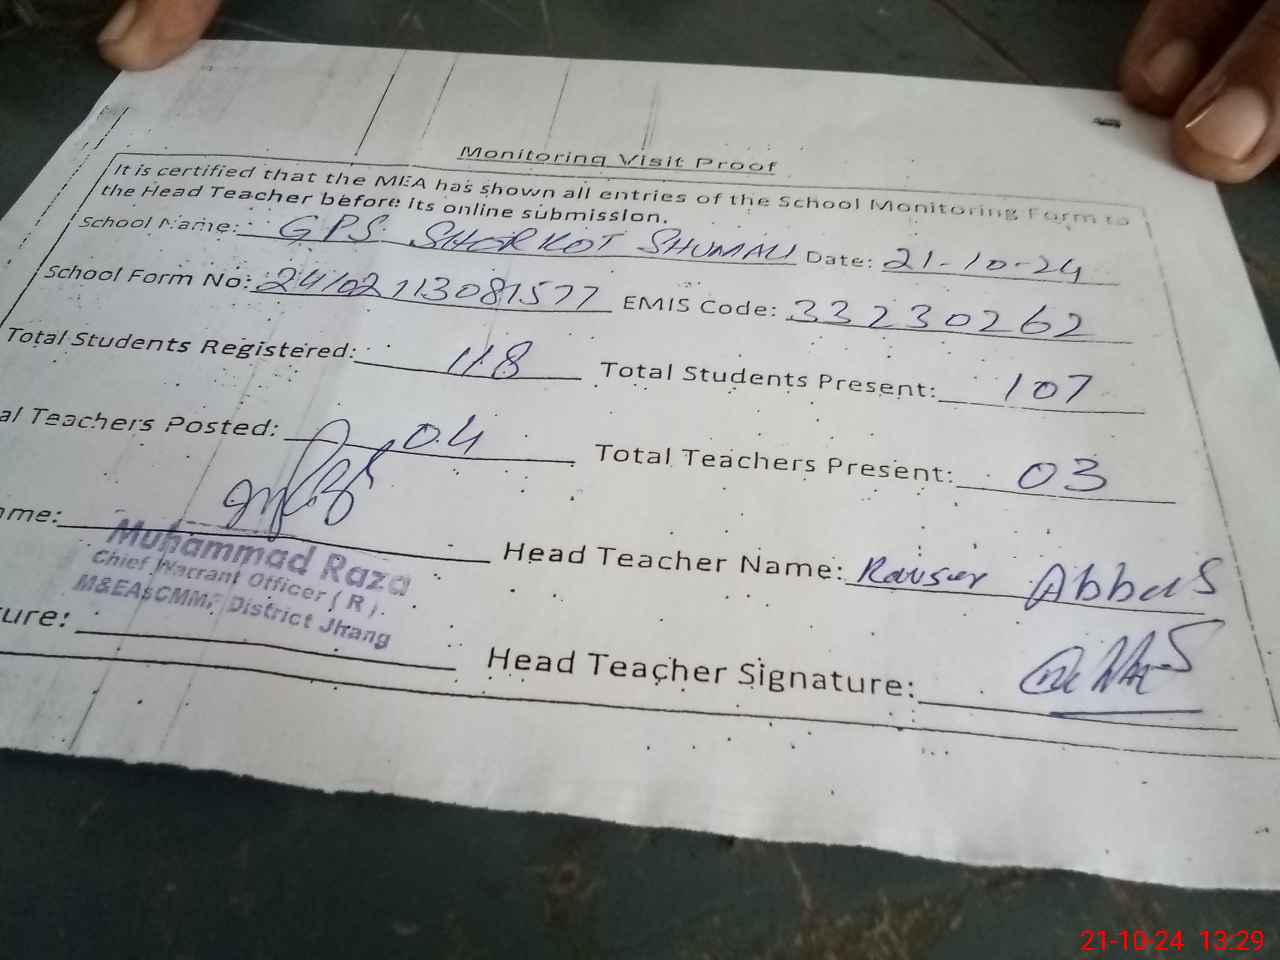 Monitoring Visit Proof
It is certified that the MEA has shown all entries of the School Monitoring Form to
the Head Teacher before its online submission.
School Name: GPS SHORKOT SHUMALI Date: 21-10-24
School Form No: 24102113081577 EMIS Code: 33230262
Total Students Registered: 118 Total Students Present: 107
al Teachers Posted: 04 Total Teachers Present: 03
ame: Head Teacher Name: Abbas
Muhammad Raza
Chief Warrant Officer (R).
M&EAsCMMF District Jhang
ure: Head Teacher Signature:
21-10-24 13:29